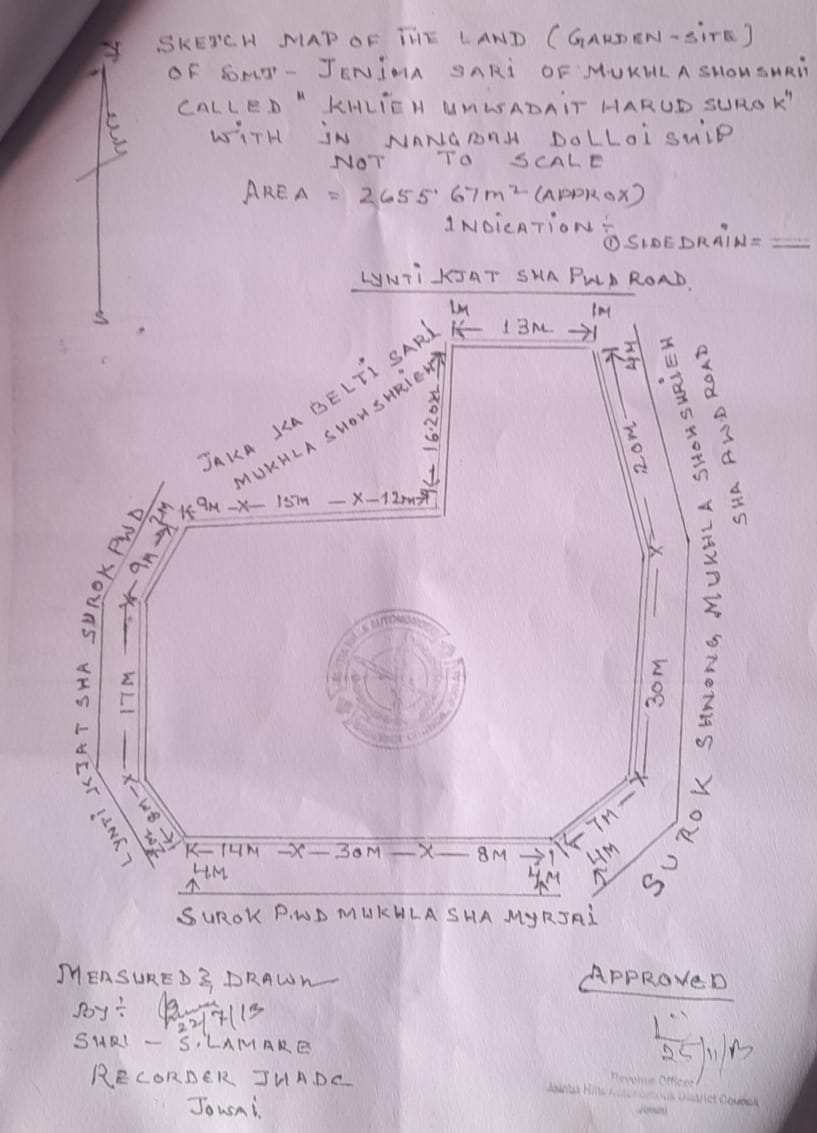 SKETCH MAP OF THE LAND (GARDEN-SITE)
OF SMT - JENIMA SARI OF MUKHLA SHOHSHRIEH
CALLED "KHLIEH UMWADAIT HARUD SUROK"
WITH IN NANGBAH DOLLOI SHIP
NOT TO SCALE
AREA = 2655.67m² (APPROX)
INDICATION ÷
① SIDEDRAIN =
S
LYNTI KJAT SHA PWD ROAD.
1M
13M
1M
4M
20M
30M
7M
4M
SUROK SHNONG MUKHLA SHOHSHRIEH
SHA PWD ROAD
JAKA KA BELTI SARI
MUKHLA SHOHSHRIEH
16.20M
9M -X- 15M -X- 12M
2M
9M
17M
8M
LYNTI KJAT SHA SUROK PWD
14M -X- 30M -X- 8M
4M
4M
SUROK P.WD MUKHLA SHA MYRJAI
MEASURED & DRAWN
By ÷
22/7/13
SHRI - S. LAMARE
RECORDER JHADC
Jowai.
APPROVED
25/11/13
Revenue Officer
Jaintia Hills Autonomous District Council
Jowai